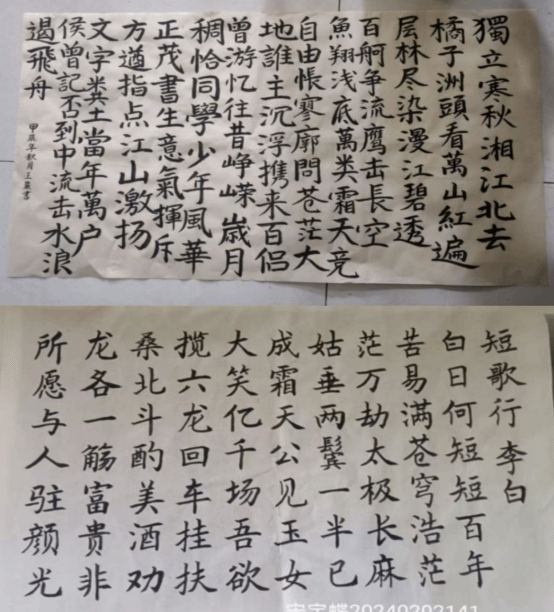 獨立寒秋湘江北去
橘子洲頭看萬山紅遍
层林尽染漫江碧透
百舸争流鹰击長空
魚翔浅底萬类霜天竞
自由悵寥廓問苍茫大
地誰主沉浮携来百侣
曾游忆往昔峥嵘歳月
稠恰同學少年風華
正茂書生意氣揮斥
方遒指点江山激扬
文字粪土當年萬户
侯曾記否到中流击水浪
遏飛舟
甲辰年秋月王書
短歌行 李白
白日何短短百年
苦易满苍穹浩茫
茫万劫太极长麻
姑垂两鬓一半已
成霜天公见玉女
大笑亿千场吾欲
揽六龙回车挂扶
桑北斗酌美酒劝
龙各一觞富贵非
所愿与人驻颜光
20240202141